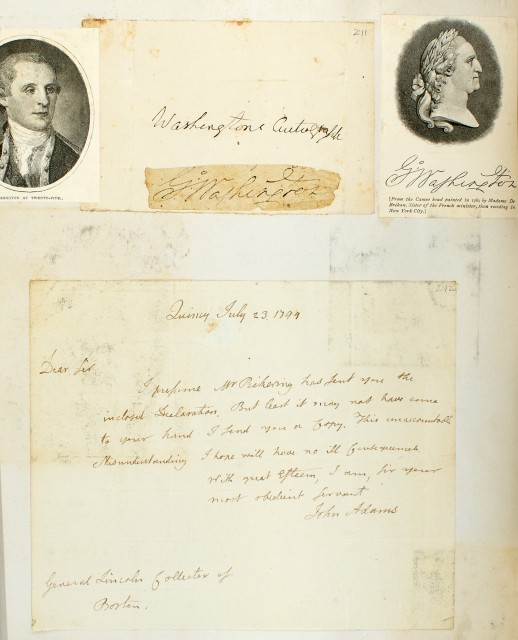 211
Washingtons Autograph
Go Washington
WASHINGTON AT TWENTY-FIVE.
Go Washington
[From the Cameo head painted in 1789 by Madame De
Brehan, Sister of the French minister, then residing in
New York City.]
212
Quincy July 23. 1799
Dear Sir
I presume Mr Pickering has sent you the
inclosed Declaration. But least it may not have come
to your hand I send you a Copy. This unaccountable
Misunderstanding I hope will have no ill Consequences
With great Esteem, I am, Sir your
most obedient Servant
John Adams
General Lincoln Collector of
Boston.